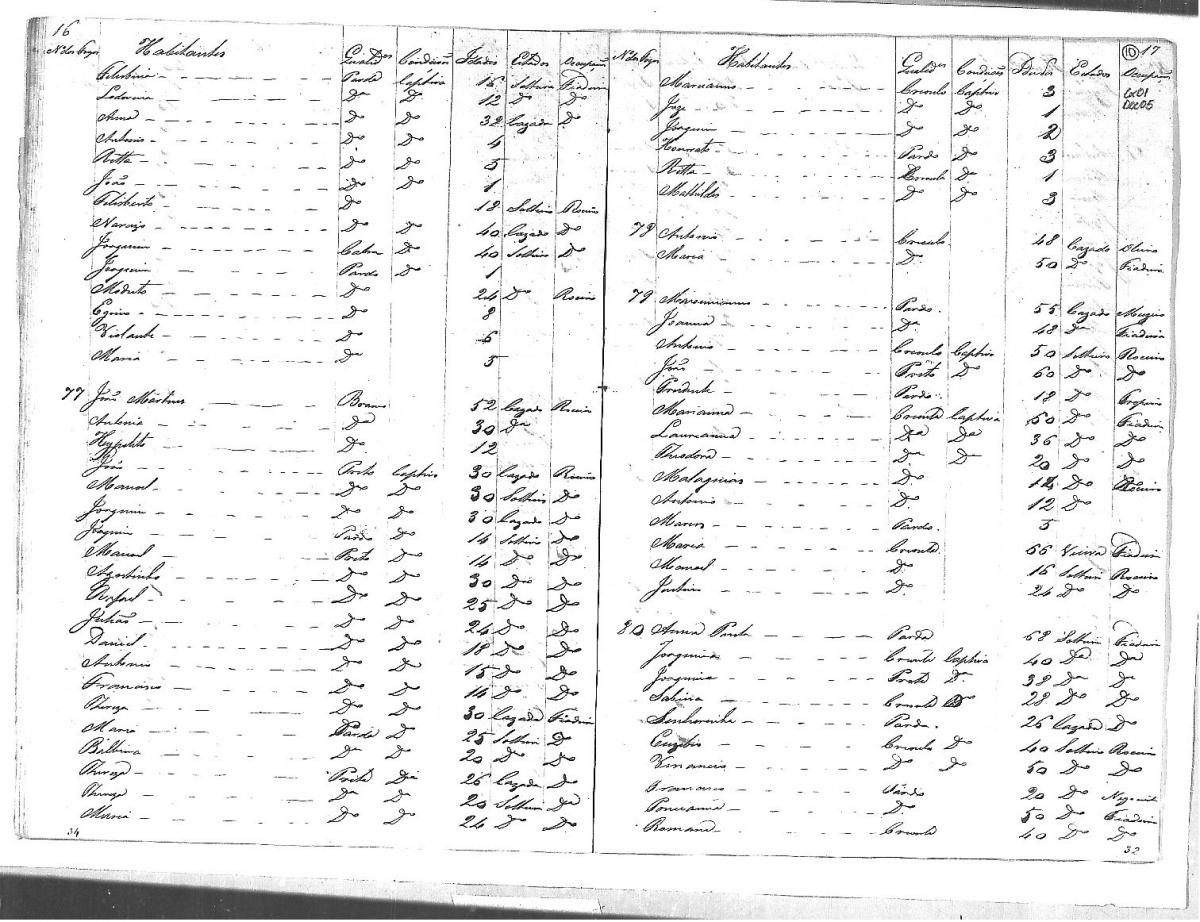 16
Nº dos Fogos Habitantes Qualidˢ Condicõˢ Idades Estados Ocupaçõˢ
Felisbina Parda Captiva 16 Solteira Fiadeira
Dª Dª 12 Dº Dº
Anna Dº Dº 32 Cazada Dº
Antonio Dº Dº 4
Ritta Dº Dº 5
João Dº Dº 1
Felisberto Dº 18 Solteiro Roceiro
Dº Dº 40 Cazado Dº
Joaquim Cabra Dº 40 Solteiro Dº
Joaquim Pardo Dº 1
Modesto Dº 24 Dº Roceiro
Dº 8
Violante Dº 6
Maria Dª 5
77 João Martins Branco 52 Cazado Roceiro
Antonia Dª 30 Dª
Hypolito Dº 12
João Preto Captivo 30 Cazado Roceiro
Manoel Dº Dº 30 Solteiro Dº
Joaquim Dº Dº 30 Cazado Dº
Joaquim Pardo Dº 14 Solteiro Dº
Manoel Preto Dº 14 Dº Dº
Agostinho Dº Dº 30 Dº Dº
Rafael Dº Dº 25 Dº Dº
Julião Dº Dº 24 Dº Dº
Daniel Dº Dº 18 Dº Dº
Antonio Dº Dº 15 Dº Dº
Francisco Dº Dº 14 Dº Dº
Thereza Dº Dº 30 Cazada Fiadeira
Maria Parda Dº 25 Solteira Dº
Balbina Dª Dº 20 Dº Dº
Thereza Preta Dª 26 Cazada Dº
Thereza Dª Dª 20 Solteira Dª
Maria Dº Dº 24 Dº Dº
34
10 17
Cx01
Doc05
Nº dos Fogos Habitantes Qualidˢ Condicõˢ Idades Estados Ocupaçõˢ
Marianno Creoulo Captivo 3
Joze Dº Dº 1
Joaquim Dº Dº 2
Honorato Pardo Dº 3
Ritta Creoula Dº 1
Mathildes Dº Dº 3
78 Antonio Creoulo 48 Cazado
Maria Dª 50 Dº Fiadeira
79 Maximianno Pardo 55 Cazado Muzico
Joanna Dª 48 Dª Fiadeira
Antonio Creoulo Captivo 50 Solteiro Roceiro
João Preto Dº 60 Dº Dº
Prudente Pardo 12 Dº
Marianna Creoula Captiva 50 Dº Fiadeira
Laureanna Dª Dª 36 Dº Dº
Theodora Dª Dº 20 Dº Dº
Malaquias Dº 12 Dº Roceiro
Antonio Dº 12 Dº
Marcos Pardo 5
Maria Creoula 56 Viuva Fiadeira
Manoel Dº 16 Solteiro Roceiro
Dº 24 Dº Dº
80 Anna Paula Parda 68 Solteira Fiadeira
Joaquina Creoula Captiva 40 Dª Dª
Joaquina Preta Dª 38 Dª Dº
Sabina Creoula Dº 28 Dº Dº
Senhorinha Parda 26 Cazada Dº
Euzebio Creoulo Dº 40 Solteiro Roceiro
Venancio Dº Dº 50 Dº Dº
Francisco Pardo 20 Dº
Ponciana Dº 50 Dº Fiadeira
Romana Creoula 40 Dº Dº
32